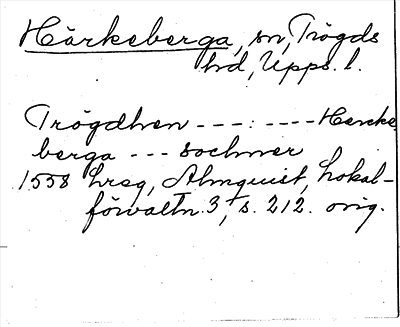 Härkeberga, sn, Trögds
hd, Upps. l.
Trögdhen ---:---- Hercke
berga --- sochner
1558 hreg, Almquist, Lokal-
förvaltn. 3, s. 212. orig.